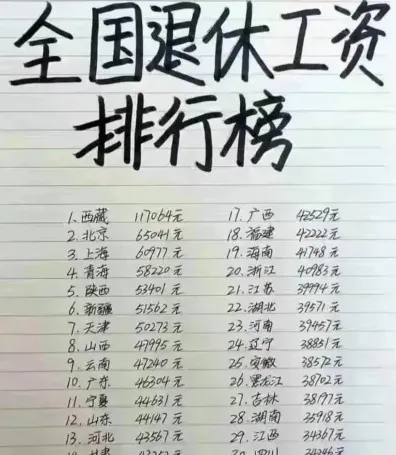 全国退休工资
排行榜
1.西藏 117064元
2.北京 65041元
3.上海 60977元
4.青海 58220元
5.陕西 53401元
6.新疆 51562元
7.天津 50273元
8.山西 47995元
9.云南 47240元
10.广东 46304元
11.宁夏 44631元
12.山东 44147元
13.河北 43567元
17.广西 42529元
18.福建 42222元
19.海南 41748元
20.浙江 40983元
21.江苏 39994元
22.湖北 39571元
23.河南 39457元
24.辽宁 38851元
25.安徽 38572元
26.黑龙江 38702元
27.吉林 38197元
28.湖南 35918元
29.江西 34367元